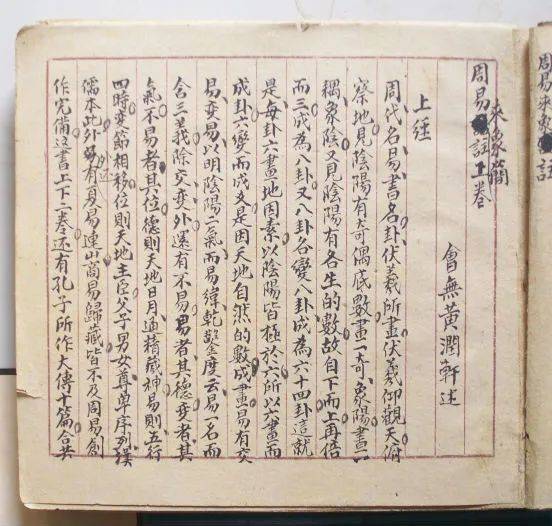 周易註上卷
來象簡
會無黃潤軒述
上經
周代名易書名卦伏羲所畫伏羲仰觀天俯
察地見陰陽有奇偶底數畫一奇象陽畫一
耦象陰又見陰陽有各生的數故自下而上再倍
而三成為八卦又八卦各變八卦成為六十四卦這就
是每卦六畫地因素以陰陽皆極於六所以六畫而
成卦六變而成爻是因天地自然的數成畫易有交
易變易以明陰陽二氣而易緯乾鑿度云易一名而
含三義除交變外還有不易易者其德變者其
氣不易者其位德則天地日月通精藏神易則五行
四時變節相移位則天地主臣父子男女尊卑序列漢
儒本此外另有夏易連山商易歸藏皆不及周易創
作完備這書上下二卷還有孔子所作大傳十篇合共
周易來象註